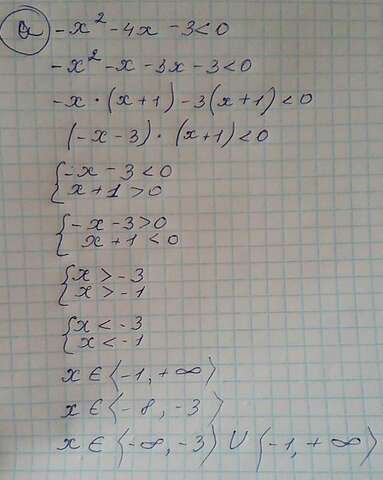 a -x² -4x -3<0
-x² -x -3x -3<0
-x · (x+1) -3(x+1) <0
(-x-3) · (x+1) <0
{-x -3 <0
x+1 >0
{-x-3>0
x+1 <0
{x > -3
x > -1
{x < -3
x < -1
x ∈ ⟨-1, +∞⟩
x ∈ ⟨-8, -3⟩
x ∈ ⟨-∞, -3⟩ ∪ ⟨-1, +∞⟩